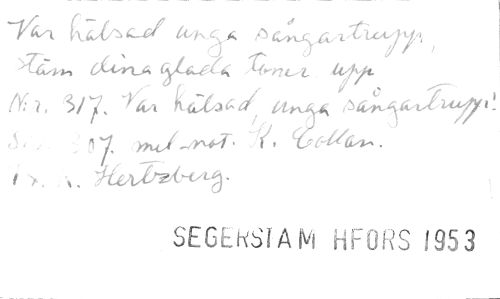 Var hälsad unga sångartrupp,
stäm dina glada toner upp
N:r. 317. Var hälsad, unga sångartrupp!
307. mel-not. K. Collan.
Hertzberg.
SEGERSTAM HFORS 1953